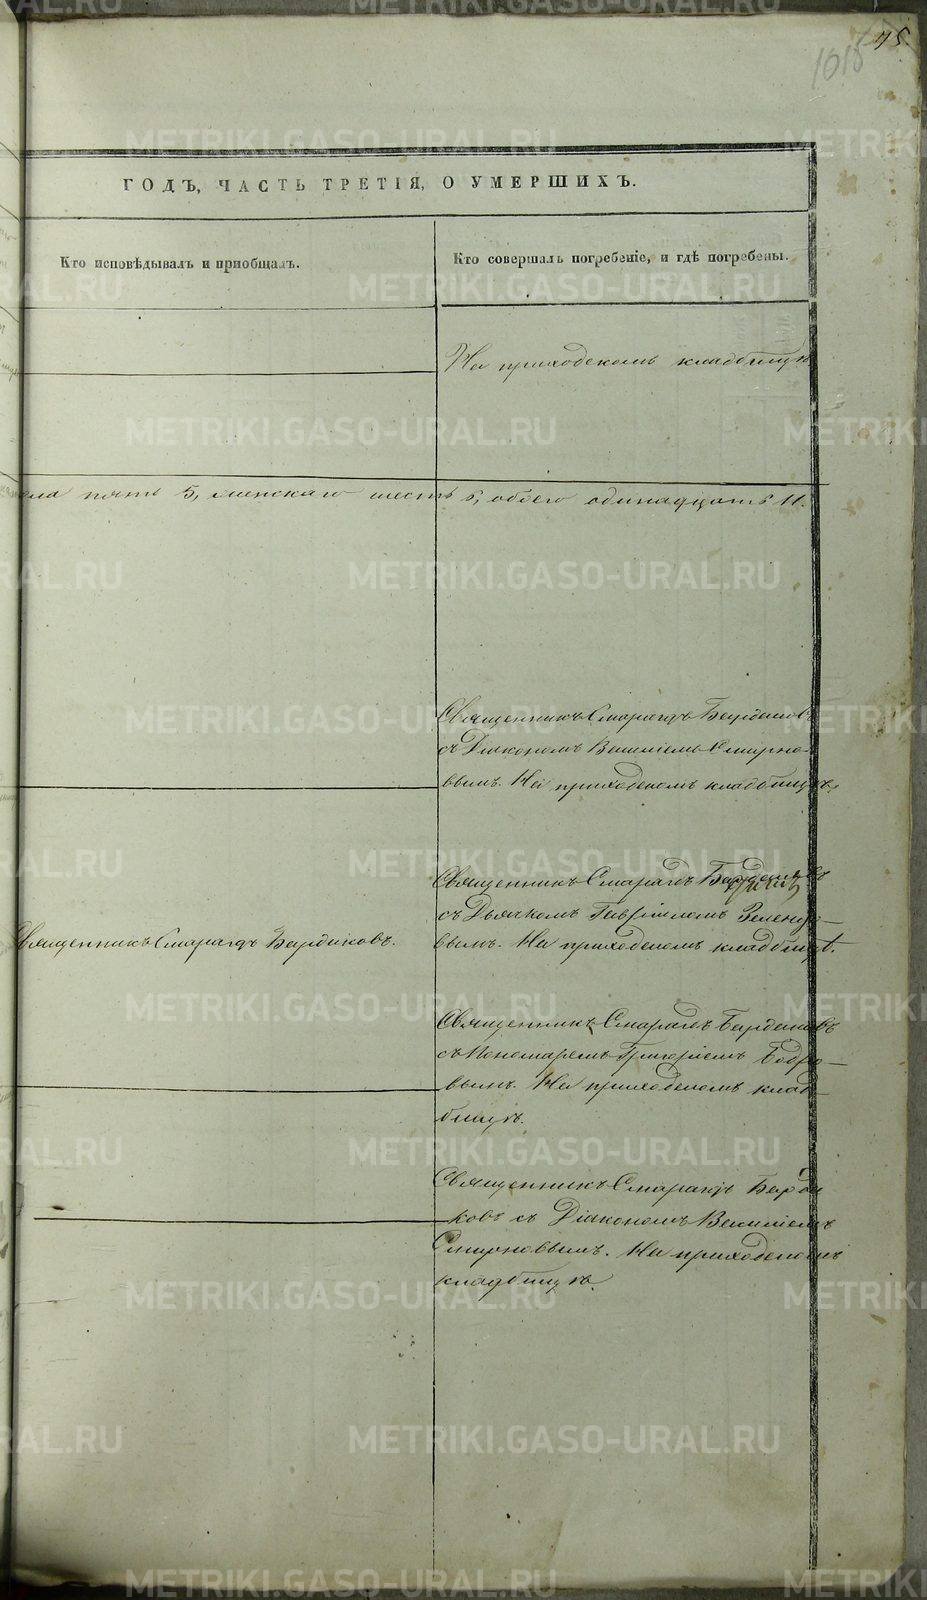 75.
1018
ГОДЪ, ЧАСТЬ ТРЕТІЯ, О УМЕРШИХЪ.
Кто исповѣдывалъ и пріобщалъ.
Кто совершалъ погребеніе, и гдѣ погребены.
На приходскомъ кладбищѣ
пять 5, женскаго шесть 6, обоего одинадцать 11.
Священникъ Смарагдъ
съ Діакономъ Василіемъ Смирно-
вымъ. На приходскомъ кладбищѣ.
Священникъ Смарагдъ
съ Дьячкомъ Гавріиломъ
вымъ. На приходскомъ кладбищѣ.
Священникъ Смарагдъ Бардаковъ.
Священникъ Смарагдъ Бардаковъ
съ Пономаремъ Григоріемъ Бобро-
вымъ. На приходскомъ клад-
бищѣ.
Священникъ Смарагдъ Барда
ковъ съ Діакономъ Василіемъ
Смирновымъ. На приходскомъ
кладбищѣ.
METRIKI.GASO-URAL.RU